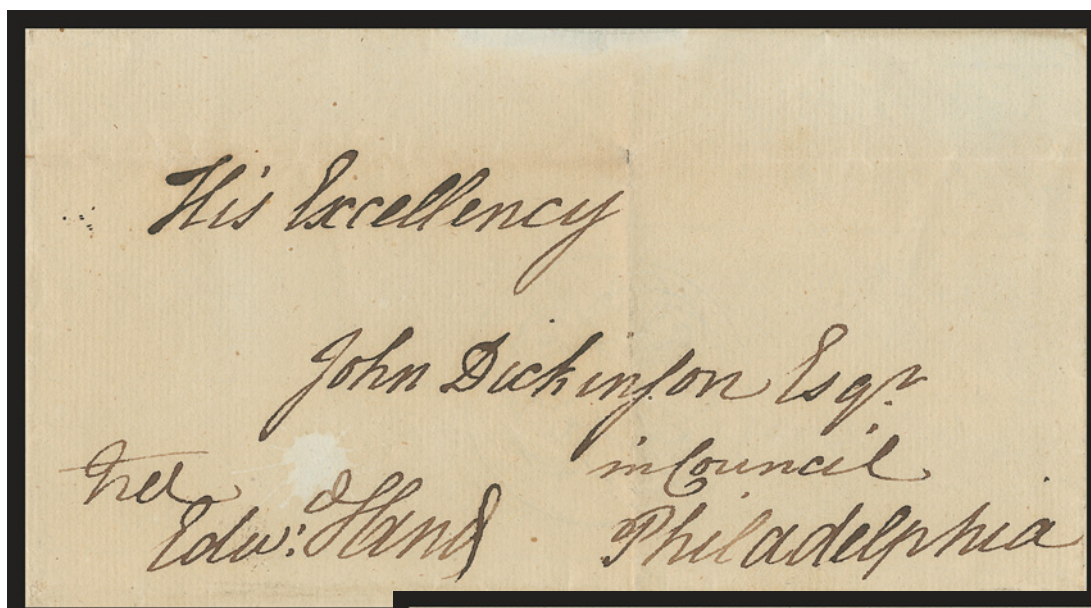 His Excellency
John Dickinſon Esqr.
in Council
Free
Edw: Hand
Philadelphia